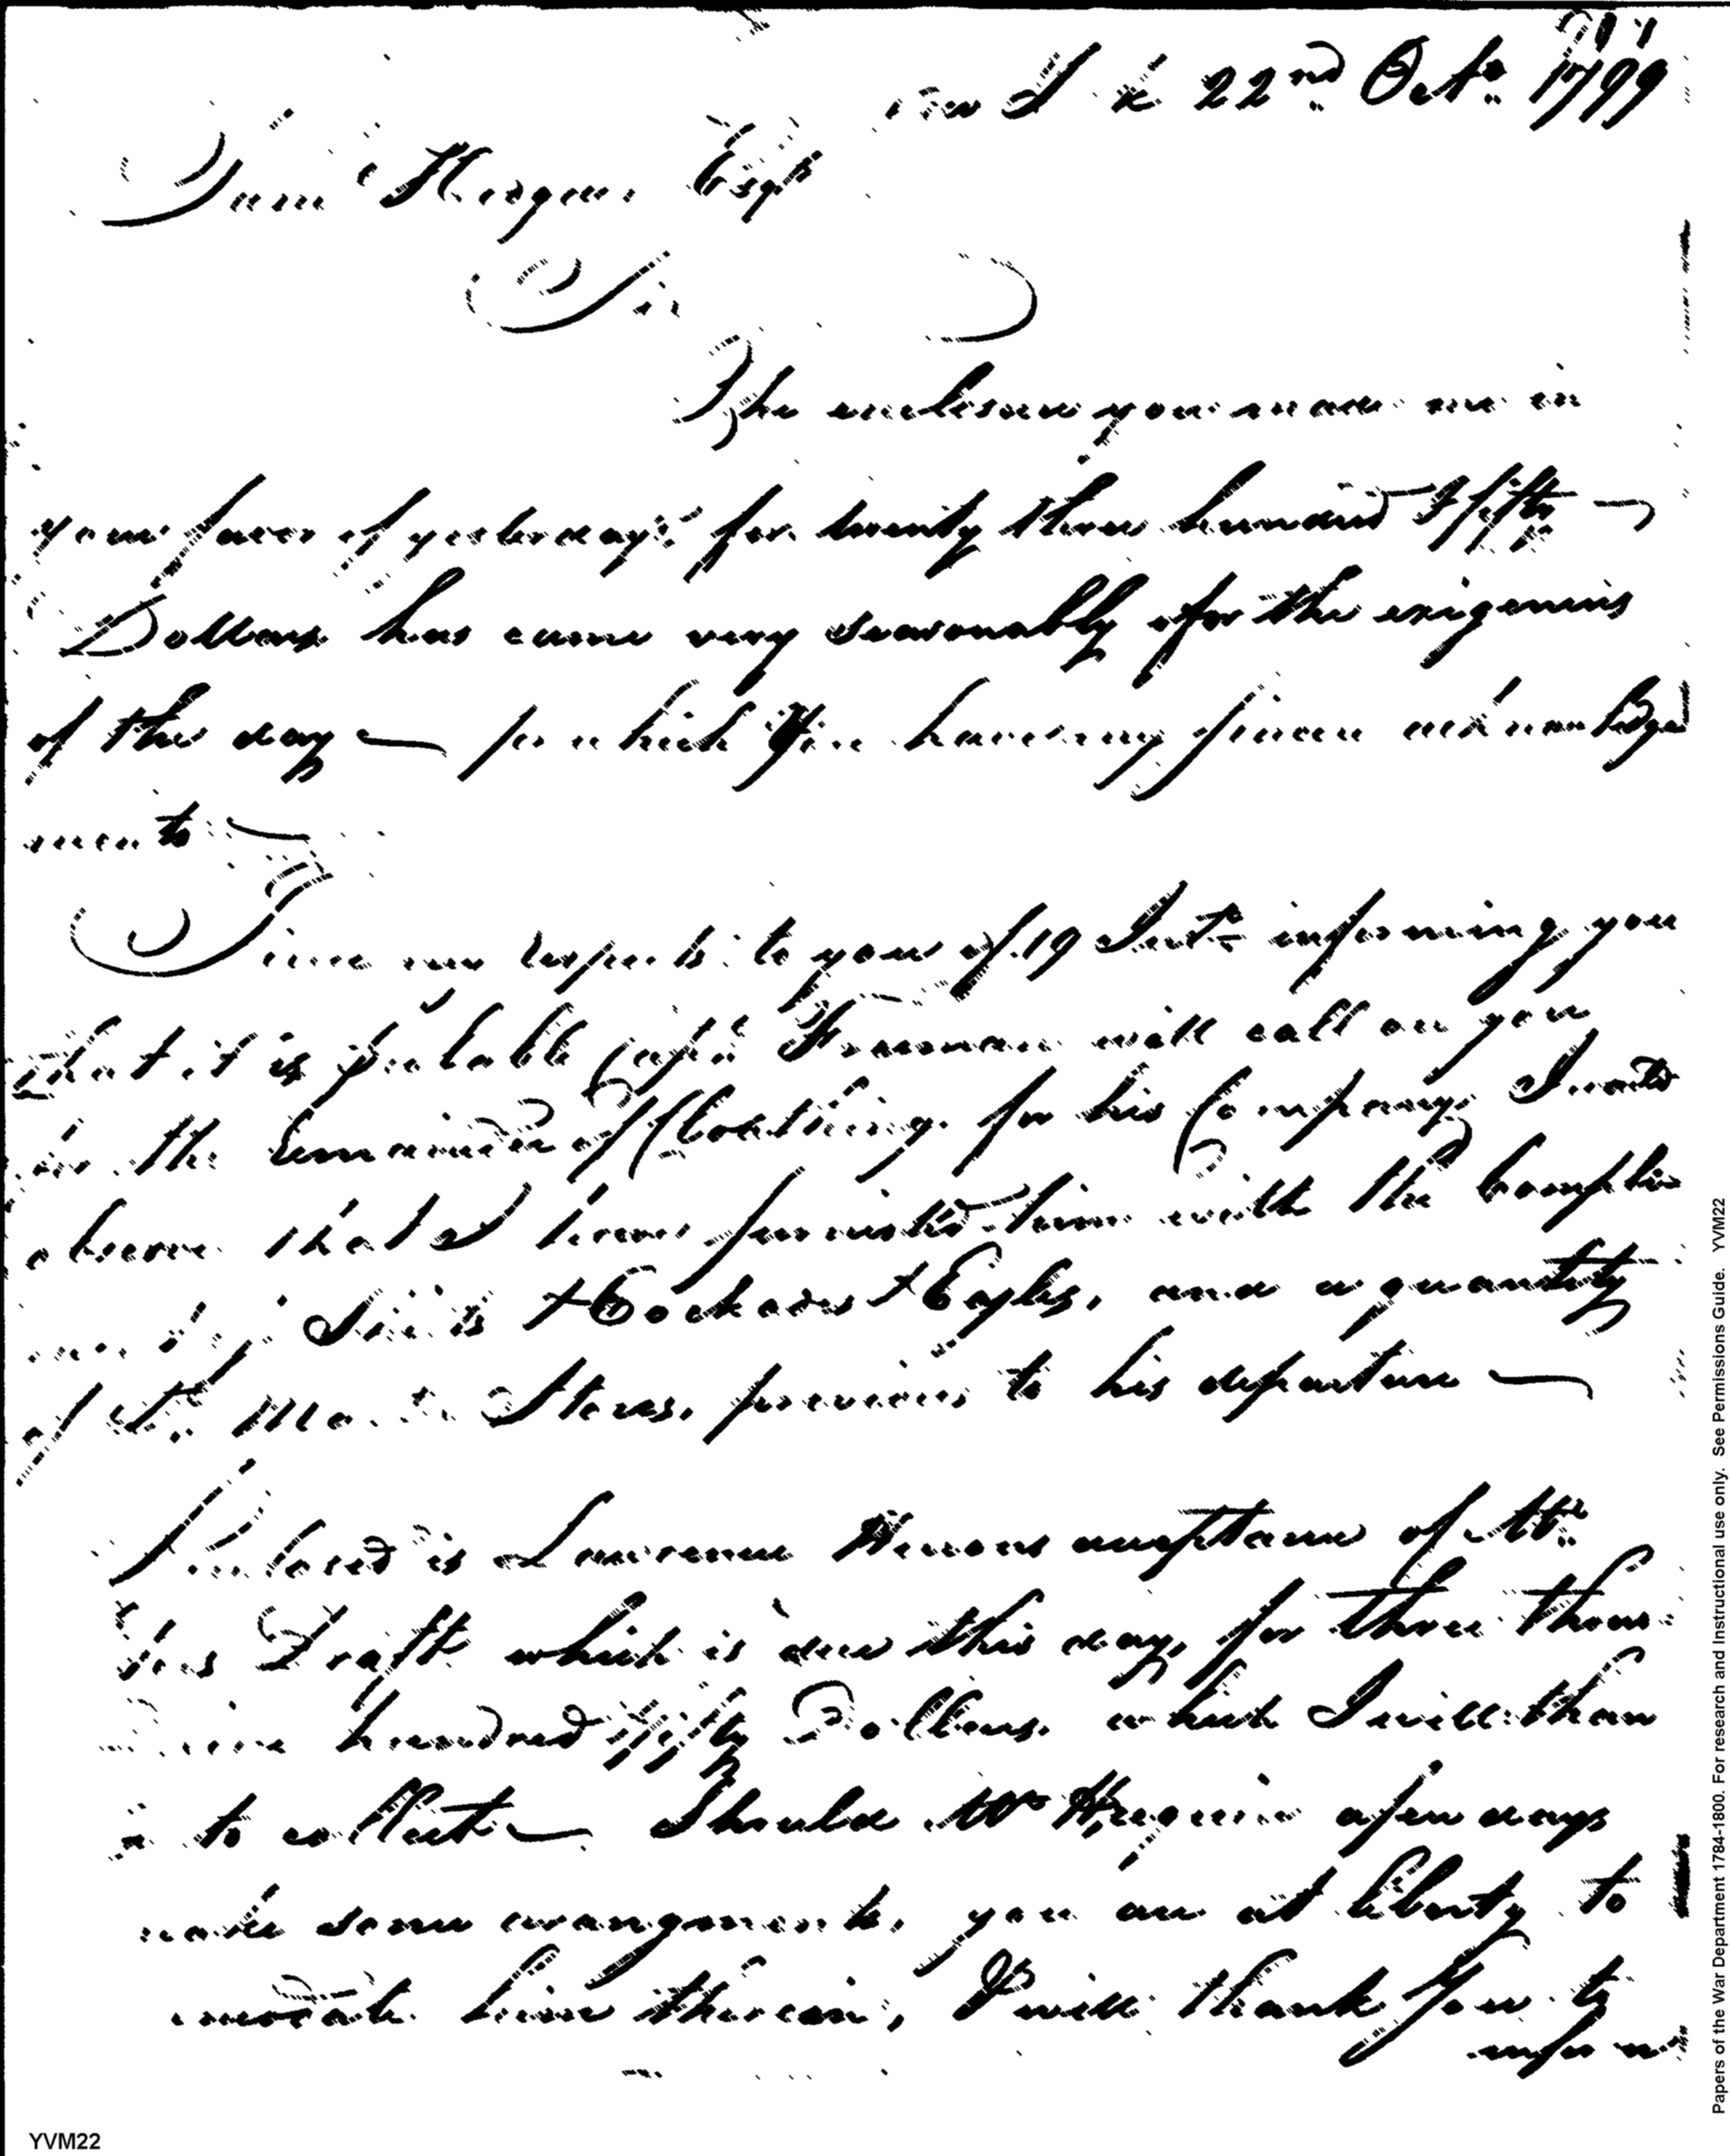 22nd Octr. 1799
Esqr
Sir
The enclosure you made me in
your favor of yesterday's for twenty three hundred & fifty
Dollars has came very seasonably for the exigencies
of the day — for which You have my sincere acknowledge
ments —
Since my respects to you of 19 Inst. informing you
that it is probable Capt. Freeman will call on you
for the remainder of Cloathing for his Company, I
observe that I have furnish'd him with the
& Cockades & Eagles, and a quantity
of Stores, previous to his departure —
Inclosed is Lawrence acceptance of Mr.
Draft which is due this day, for three thous
hundred & fifty Dollars. which I will than
to collect — Should Mr a few days
make some arrangements, you are at liberty to
him therein, I will thank You to
inform
Papers of the War Department 1784-1800. For research and Instructional use only. See Permissions Guide. YVM22
YVM22